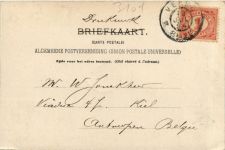 3104
Drukwerk
BRIEFKAART.
(CARTE POSTALE)
ALGEMEENE POSTVEREENIGING (UNION POSTALE UNIVERSELLE)
Zijde voor het adres bestemd. (Côté réservé à l'adresse.)
Mr. W
Kiel
Antwerpen Belgie